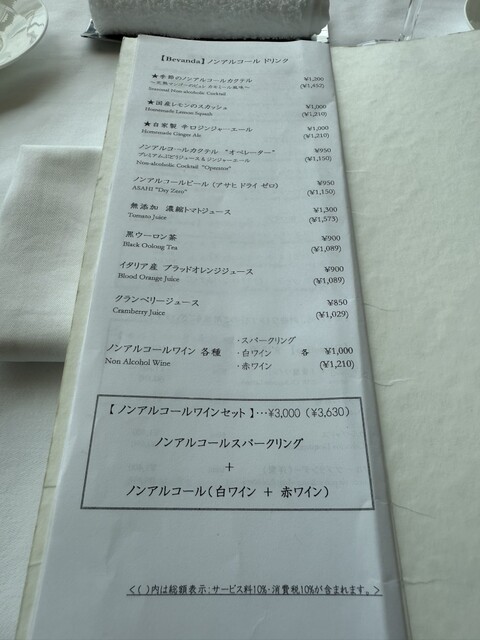 【Bevanda】ノンアルコール ドリンク
★季節のノンアルコールカクテル ¥1,200
Seasonal Non-alcoholic Cocktail (¥1,452)
★国産レモンのスカッシュ ¥1,000
Homemade Lemon Squash (¥1,210)
★自家製 辛口ジンジャーエール ¥1,000
Homemade Ginger Ale (¥1,210)
ノンアルコールカクテル “オペレーター” ¥950
プレミアムぶどうジュース & ジンジャーエール (¥1,150)
Non-alcoholic Cocktail "Operator"
ノンアルコールビール (アサヒ ドライ ゼロ) ¥950
ASAHI "Dry Zero" (¥1,150)
無添加 濃縮トマトジュース ¥1,300
Tomato Juice (¥1,573)
黒ウーロン茶 ¥900
Black Oolong Tea (¥1,089)
イタリア産 ブラッドオレンジジュース ¥900
Blood Orange Juice (¥1,089)
クランベリージュース ¥850
Cramberry Juice (¥1,029)
・スパークリング
ノンアルコールワイン 各種 ・白ワイン 各 ¥1,000
Non Alcohol Wine ・赤ワイン (¥1,210)
【 ノンアルコールワインセット 】…¥3,000 (¥3,630)
ノンアルコールスパークリング
+
ノンアルコール(白ワイン + 赤ワイン)
<( )内は総額表示:サービス料10%・消費税10%が含まれます。>